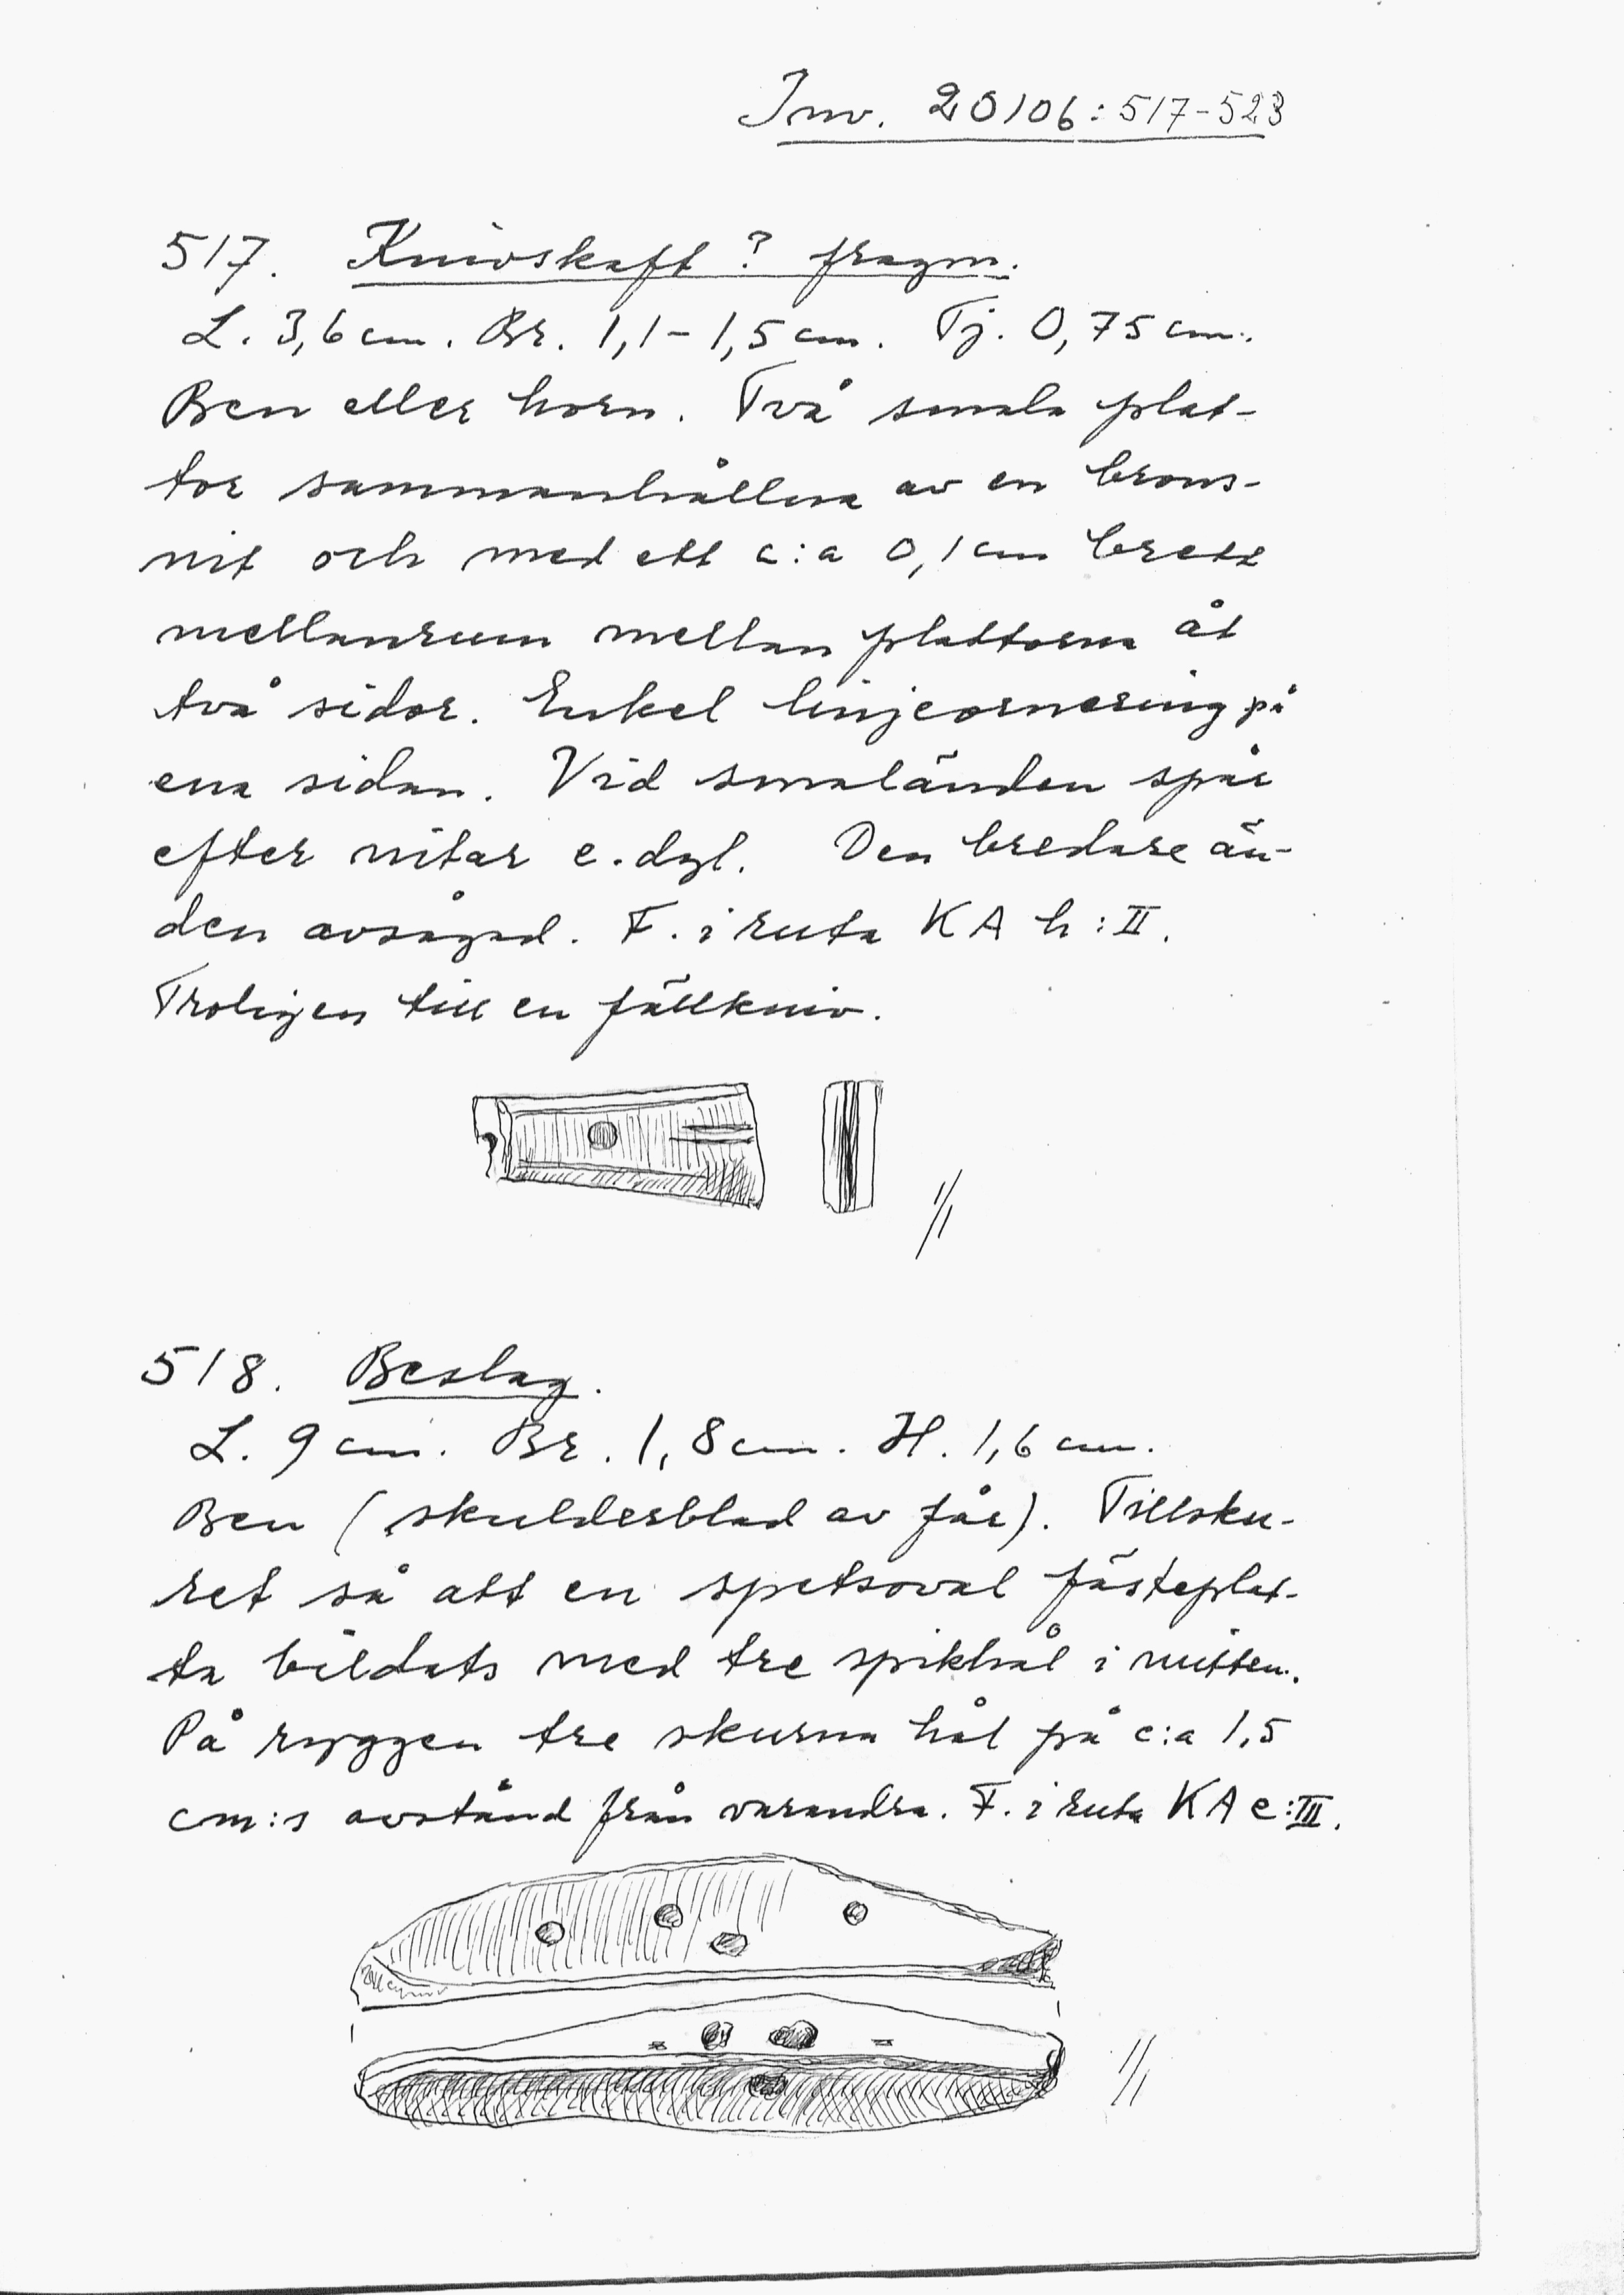 Inv. 20106:517-523
517. Knivskaft? fragm.
L. 3,6 cm. Br. 1,1-1,5 cm. Tj. 0,75 cm.
Ben eller horn. Två smala plat-
tor sammanhållna av en brons-
nit och med ett c:a 0,1 cm brett
mellanrum mellan plattorna åt
två sidor. Enkel linjeornering på
ena sidan. Vid smaländen spår
efter nitar e.dyl. Den bredare än-
den avsågad. F. i ruta KA h:II.
Troligen till en fällkniv.
1/1
518. Beslag.
L. 9 cm. Br. 1,8 cm. H. 1,6 cm.
Ben (skulderblad av får). Tillsku-
ret så att en spetsoval fästeplat-
ta bildats med tre spikhål i mitten.
På ryggen tre skurna hål på c:a 1,5
cm:s avstånd från varandra. F. i ruta KA e:III.
1/1